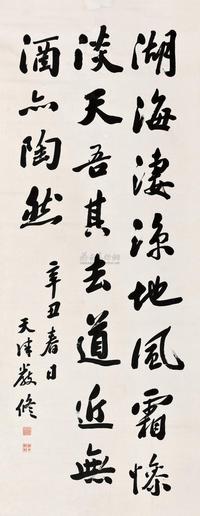 湖海凄凉地風霜慘
淡天吾其去道近無
酒亦陶然
辛丑春日
天津嚴修